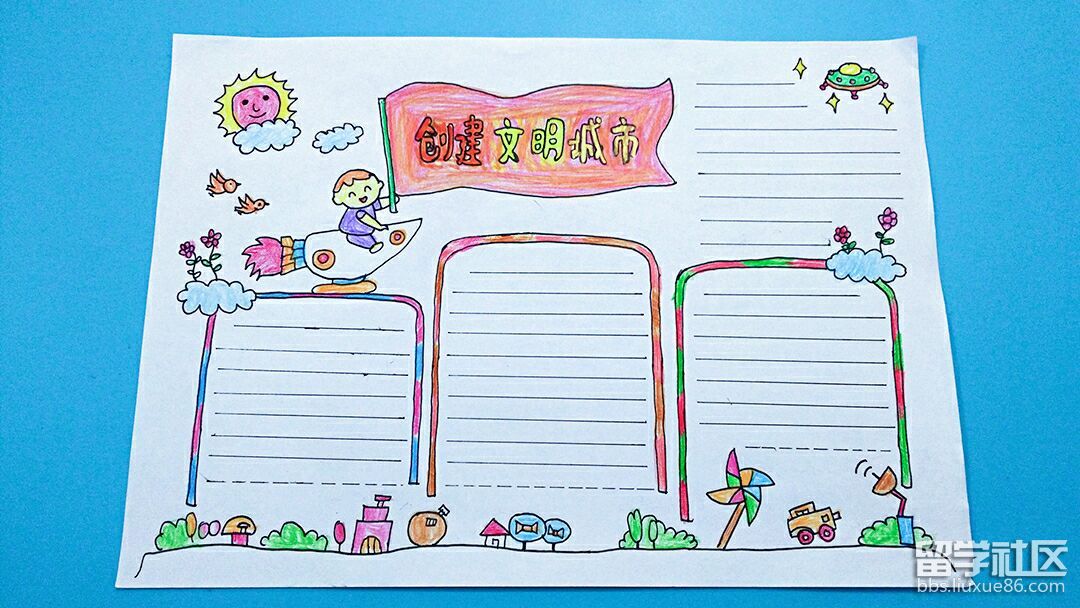 创建文明城市
留学社区
bbs.liuxue86.com